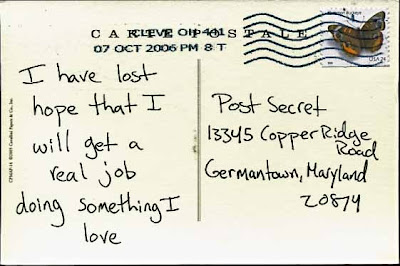 CARTE POSTALE
CLEVE OH 441
07 OCT 2006 PM 8 T
USA 24
I have lost
hope that I
will get a
real job
doing something I
love
Post Secret
13345 Copper Ridge
Road
Germantown, Maryland
20874